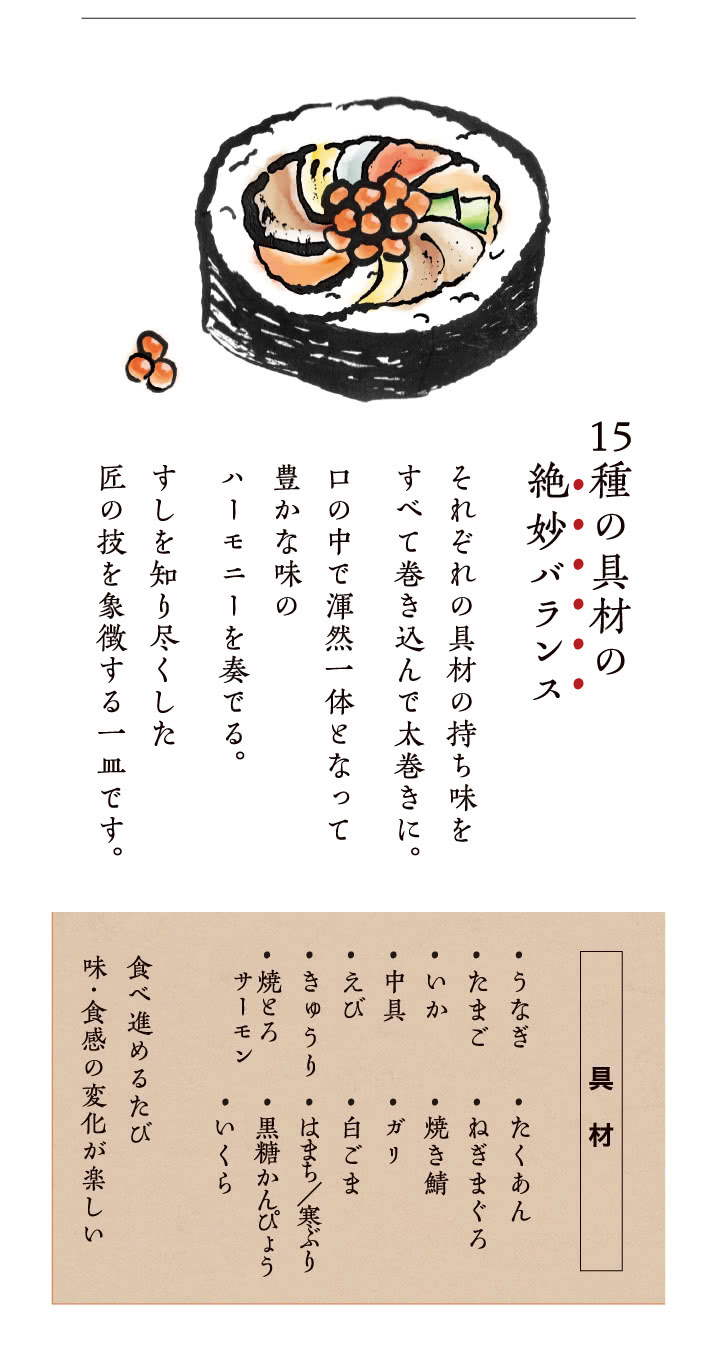 15種の具材の
絶妙バランス
それぞれの具材の持ち味を
すべて巻き込んで太巻きに。
口の中で渾然一体となって
豊かな味の
ハーモニーを奏でる。
すしを知り尽くした
匠の技を象徴する一皿です。
具材
・うなぎ
・たまご
・いか
・中具
・えび
・きゅうり
・焼とろ
サーモン
・たくあん
・ねぎまぐろ
・焼き鯖
・ガリ
・白ごま
・はまち／寒ぶり
・黒糖かんぴょう
・いくら
食べ進めるたび
味・食感の変化が楽しい